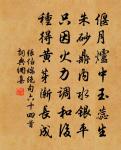 偃月爐中玉蕊生
朱砂鼎內水銀平
只因火力調和後
種得黃芽漸長成
張伯端絕句六十四首
詞典網集